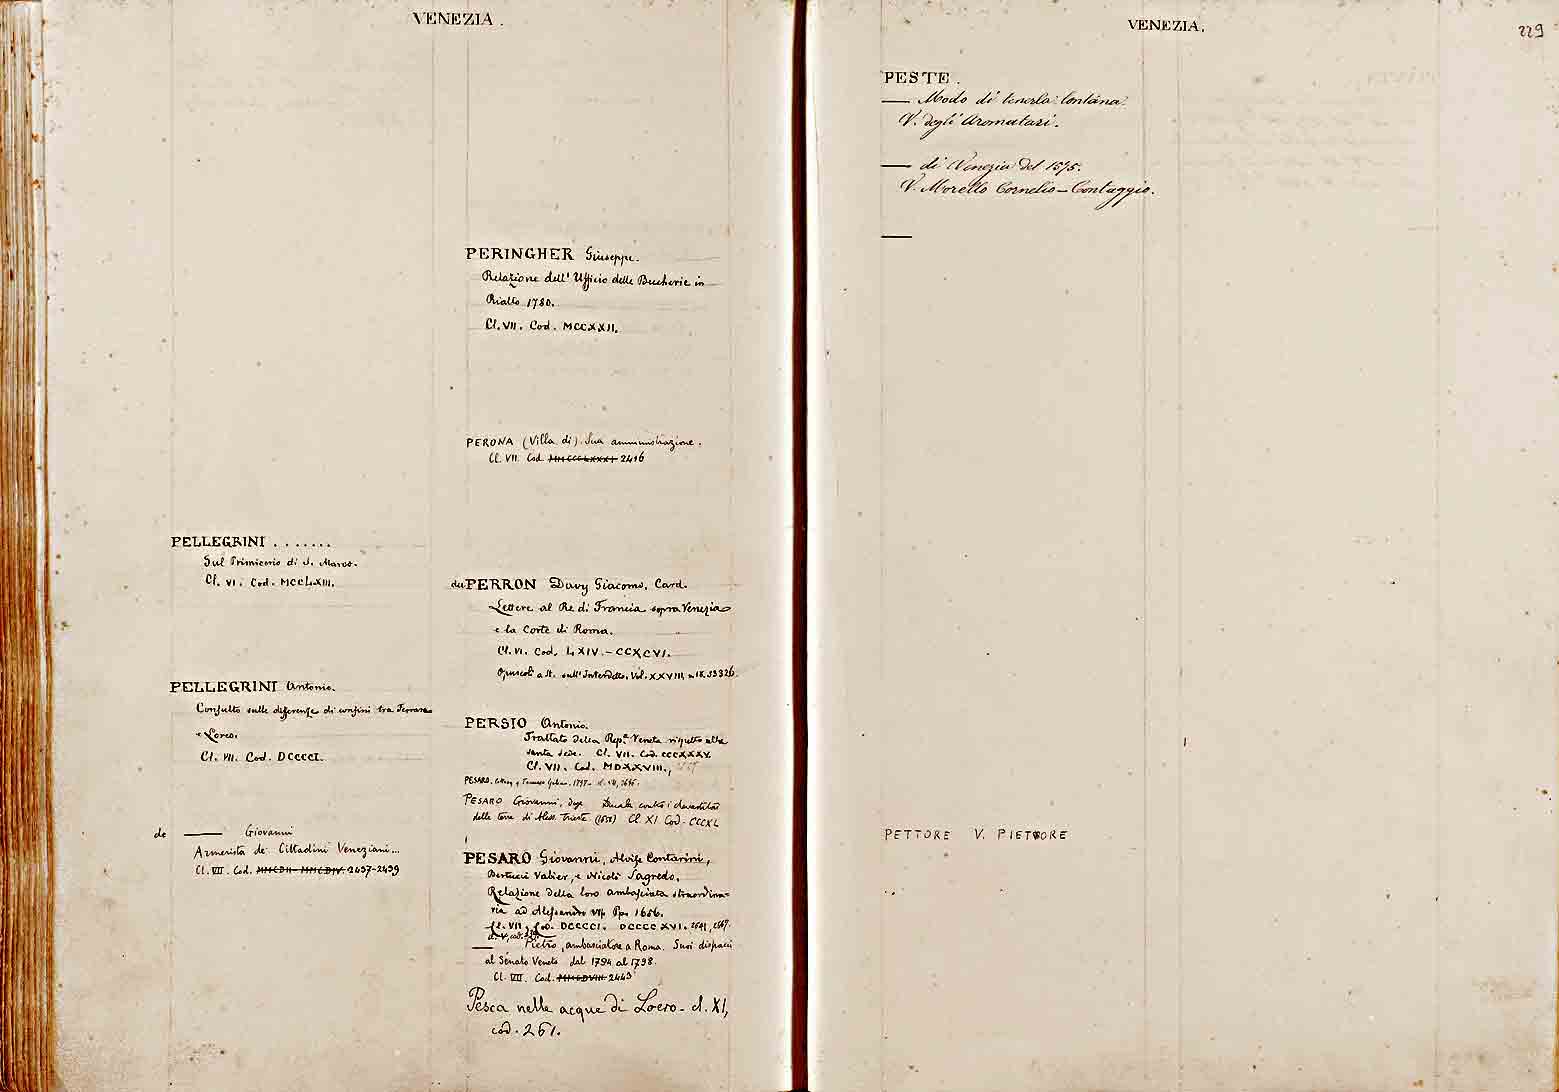 VENEZIA.
PELLEGRINI . . . . . . .
Sul Primicerio di S. Marco.
Cl. VI. Cod. MCCLXIII.
PELLEGRINI Antonio.
Consulto sulle differenze di confini tra Ferrara
e Loreo.
Cl. VII. Cod. DCCCCI.
de —— Giovanni
Armerista de' Cittadini Veneziani...
Cl. VII. Cod. MMCDII-MMCDIV. 2497-2499
PERINGHER Giuseppe.
Relazione dell' Ufficio delle Beccherie in
Rialto 1780.
Cl. VII. Cod. MCCXXII.
PERONA (Villa di). Sua amministrazione.
Cl. VII. Cod. 2416
du PERRON Davy Giacomo, Card.
Lettere al Re di Francia sopra Venezia
e la Corte di Roma.
Cl. VI. Cod. LXIV.-CCXCVI.
Opuscoli a st. sull' Interdetto, Vol. XXVIII, n. 18. 53326.
PERSIO Antonio.
Trattato della Rep.a Veneta rispetto alla
santa sede. Cl. VII. Cod. CCCXXXV.
Cl. VII. Cod. MDXXVIII.,
PESARO. 1797- cl. VII,
PESARO Giovanni, doge Ducale contro i devastatori
delle terre di Aless. Trieste (1658) Cl. XI Cod. CCCXL
PESARO Giovanni, Alvise Contarini,
Bertucci Valier, e Nicolò Sagredo.
Relazione della loro ambasciata straordina-
ria ad Alessandro VII. Pp. 1656.
Cl. VII. Cod. DCCCCI. DCCCCXVI. 2641, 2667.
—— Pietro, ambasciatore a Roma. Suoi dispacci
al Senato Veneto dal 1794 al 1798.
Cl. VII. Cod. MMCDVIII. 2443
Pesca nelle acque di Loero - cl. XI,
cod. 261.
VENEZIA.
229
PESTE.
—— Modo di tenerla lontana.
V. degli Aromatari.
—— di Venezia del 1575.
V. Morello Cornelio - Contaggio.
——
PETTORE V. PIETTORE